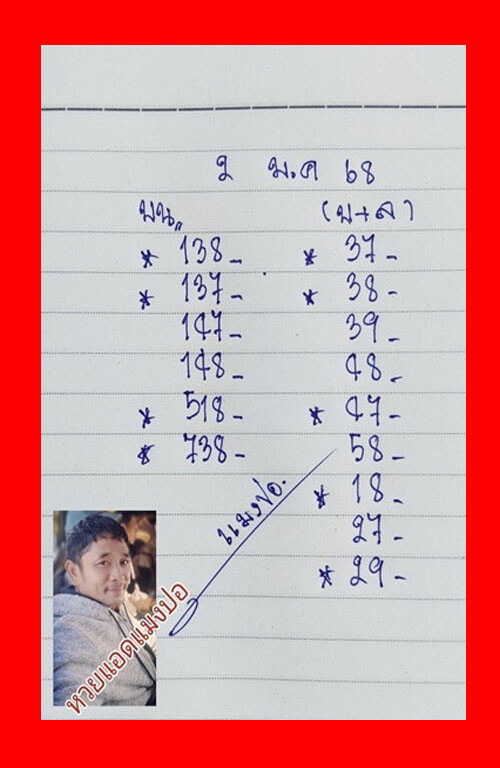 2 ม.ค 68
บน,, (บ+ล)
* 138- * 37-
* 137- * 38-
147- 39-
148- 48-
* 518- * 47-
* 738- 58-
* 18-
27-
* 29-
แมงปอ.
หวยแอดแมงปอ